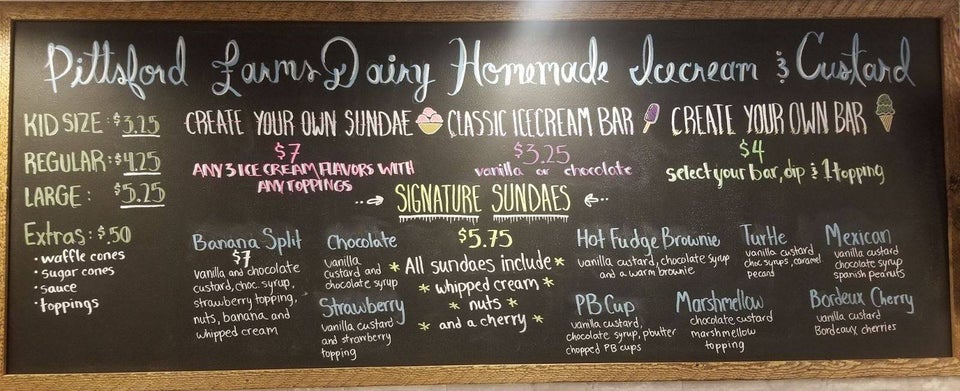 Pittsford Farms Dairy Homemade Icecream & Custard
KID SIZE: $3.25
REGULAR: $4.25
LARGE: $5.25
Extras: $.50
• waffle cones
• sugar cones
• sauce
• toppings
CREATE YOUR OWN SUNDAE
$7
ANY 3 ICE CREAM FLAVORS WITH
ANY TOPPINGS
CLASSIC ICECREAM BAR
$3.25
vanilla or chocolate
CREATE YOUR OWN BAR
$4
select your bar, dip & 1 topping
SIGNATURE SUNDAES
$5.75
* All sundaes include *
* whipped cream *
* nuts *
* and a cherry *
Banana Split
$7
vanilla and chocolate
custard, choc. syrup,
strawberry topping,
nuts, banana and
whipped cream
Chocolate
vanilla
custard and
chocolate syrup
Strawberry
vanilla custard
and strawberry
topping
Hot Fudge Brownie
vanilla custard, chocolate syrup
and a warm brownie
Turtle
vanilla custard
choc syrups, caramel
pecans
Mexican
vanilla custard
chocolate syrup
spanish peanuts
PB Cup
vanilla custard,
chocolate syrup,
chopped PB cups
Marshmellow
chocolate custard
marshmellow
topping
Bordeux Cherry
vanilla custard
Bordeaux cherries